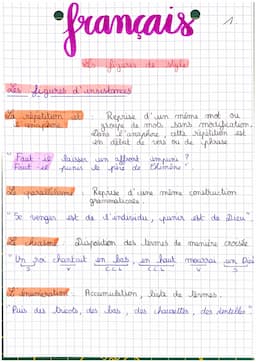 français
1.
Les figures de style
Les figures d'insistances
La répétition et Reprise d'un même mot ou
l'anaphore groupe de mots sans modification.
Dans l'anaphore, cette répétition est
en début de vers ou de phrase.
"Faut-il laisser un affront impuni ?
Faut-il punir le père de Chimène"
Le parallélisme : Reprise d'une même construction
grammaticale.
"Se venger est de l'individu, punir est de Dieu".
Le chiasme : Disposition des termes de manière croisée.
"Un roi chantait en bas, en haut mourrai un Dieu
S V C.C.L C.C.L V S
L'énumération : Accumulation, liste de termes.
"Puis des tricots, des bas, des chaussettes, des dentelles".